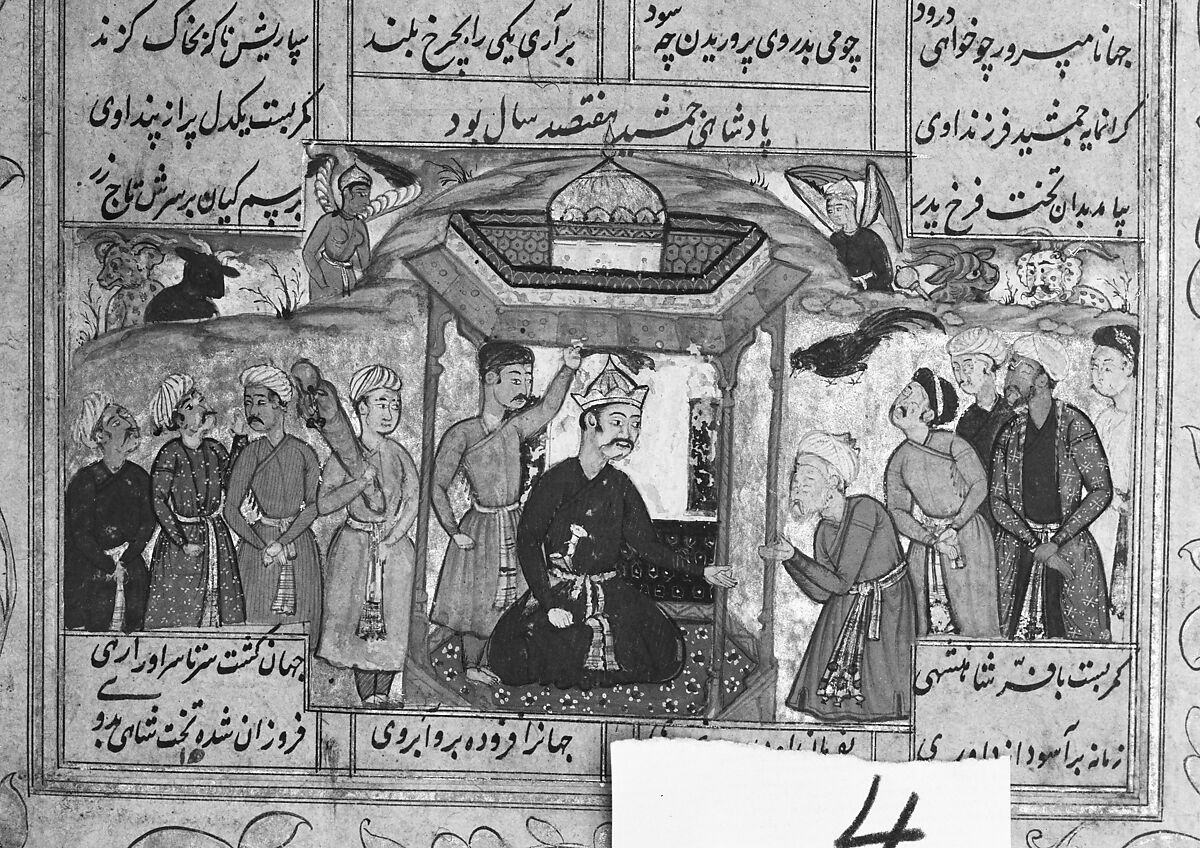 جهانا مپرور چو خواهی درود
چو می بدروی پروریدن چه سود
برآری یکی را بچرخ بلند
سپاریش ناگه بخاک گزند
پادشاهی جمشید هفتصد سال بود
گرانمایه جمشید فرزند اوی
کمر بست یکدل پر از پند اوی
بیامد بدان تخت فرخ پدر
برسم کیان بر سرش تاج زر
کمر بست با فر شاهنشهی
جهان گشت سرتاسر او را رهی
زمانه برآسود از داوری
جهانرا فزوده برو آبروی
فروزان شده تخت شاهی بدو
4